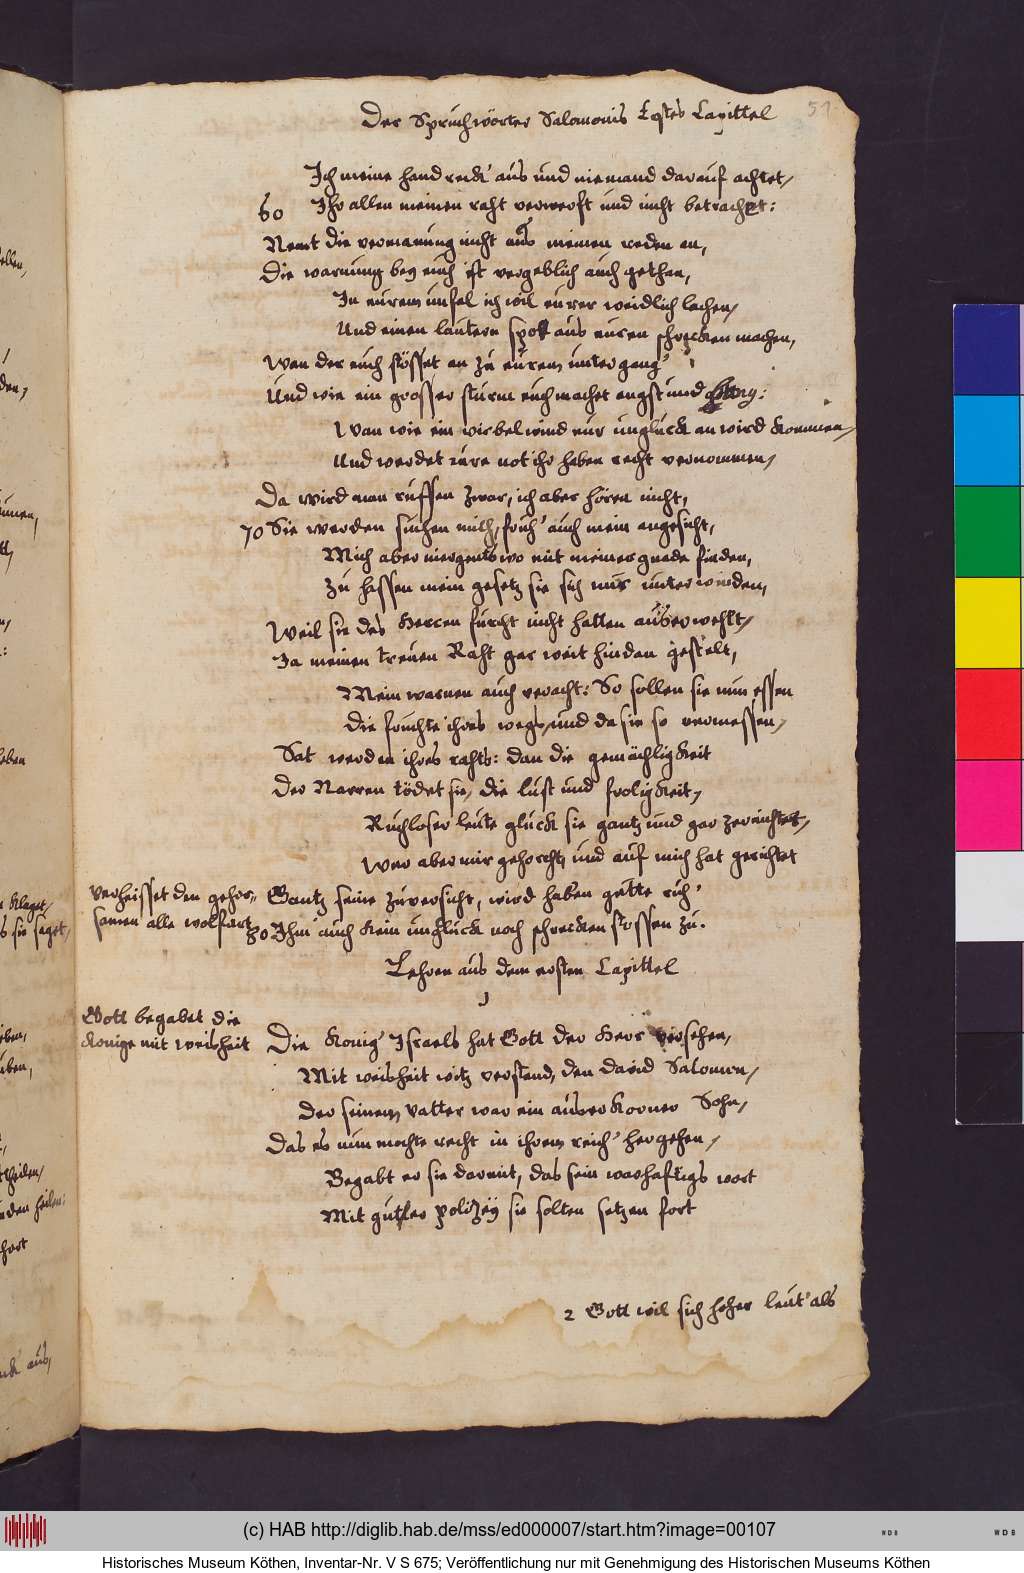 51
Der Spruchwörter Salomonis Erstes Capittel
Ich meine hand reck' aus und niemand darauf achtet,
60 Ihr allen meinen raht verwerft und nicht betrachtet:
Nemt die vermanung nicht aus meinen reden an,
Die warnung bey euch ist vergeblich auch gethan,
In eurem unfal ich wil eurer weidlich lachen,
Und einen lautern spott aus euren schrecken machen,
Wan der euch stösset an zu eurem untergang'
Und wie ein grosser sturm euch machet angst und
Wan wie ein wirbelwind eur ungluck an wird kommen,
Und werdet eure not ihr haben recht vernommen,
Da wird man ruffen zwar, ich aber hören nicht,
70 Sie werden suchen mich, früh' auch mein angesicht,
Mich aber niergents wo mit meiner gnade finden,
Zu hassen mein gesetz sie sich nur unterwinden,
Weil sie des Herren furcht nicht hatten auserwehlt,
Ja meinen treuen Raht gar weit hinden gestelt,
Mein warnen auch veracht: So sollen sie nun essen
Die fruchte ihres wegs, und da sie so vermessen,
Sat werden ihres rahts: dan die gemächligkeit
Der Narren tödet sie, die lust und froligkeit,
Ruchloser leute gluck sie gantz und gar zernichtet,
Wer aber mir gehorcht, und auf mich hat gerichtet
verheisset den gehor-
samen alle wolfart
Gantz seine zuversicht, wird haben gutte ruh'
80 Ihm auch kein unglück noch schrecken stossen zu.
Lehren aus dem ersten Capittel
1
Gott begabet die
Konige mit weisheit
Die Konig' Israels hat Gott der Herr versehen,
Mit weisheit witz verstand, den david Salomon,
Der seinem vatter war ein auserkorner Sohn,
Das es nun mochte recht in ihrem reich' hergehen,
Begabt er sie darmit, das sein warhaftigs wort
Mit gutter polizey sie solten setzen fort
2 Gott wil sich hoher leut' als
(c) HAB http://diglib.hab.de/mss/ed000007/start.htm?image=00107
Historisches Museum Köthen, Inventar-Nr. V S 675; Veröffentlichung nur mit Genehmigung des Historischen Museums Köthen